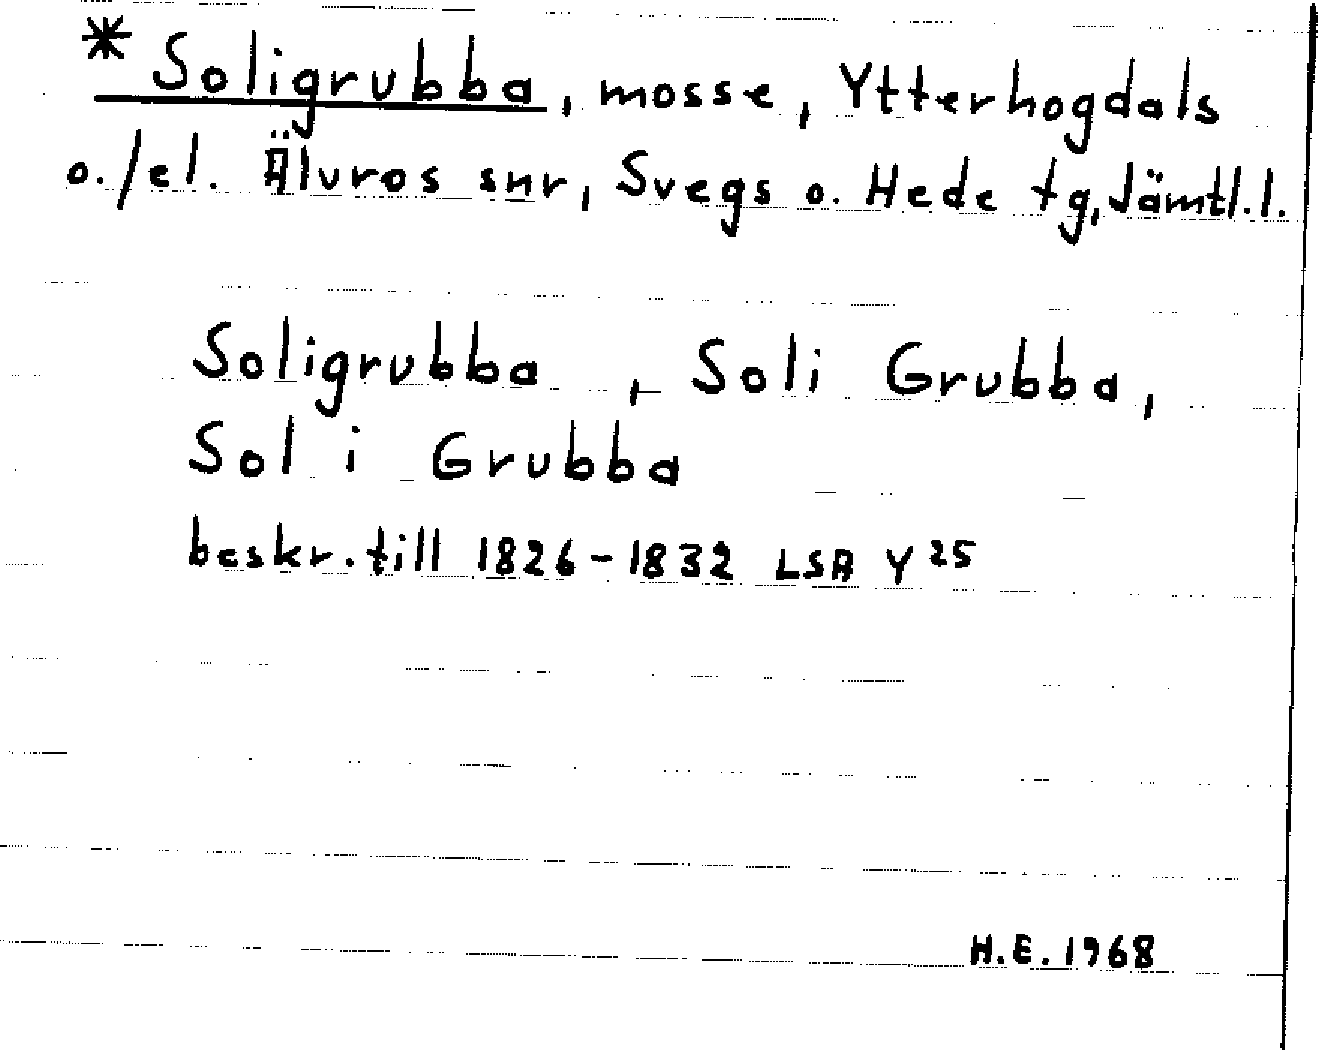 * Soligrubba, mosse, Ytterhogdals
o./el. Älvros snr, Svegs o. Hede tg, Jämtl.l.
Soligrubba, Soli Grubba,
Sol i Grubba
beskr. till 1826-1832 LSA Y 25
H.E. 1968